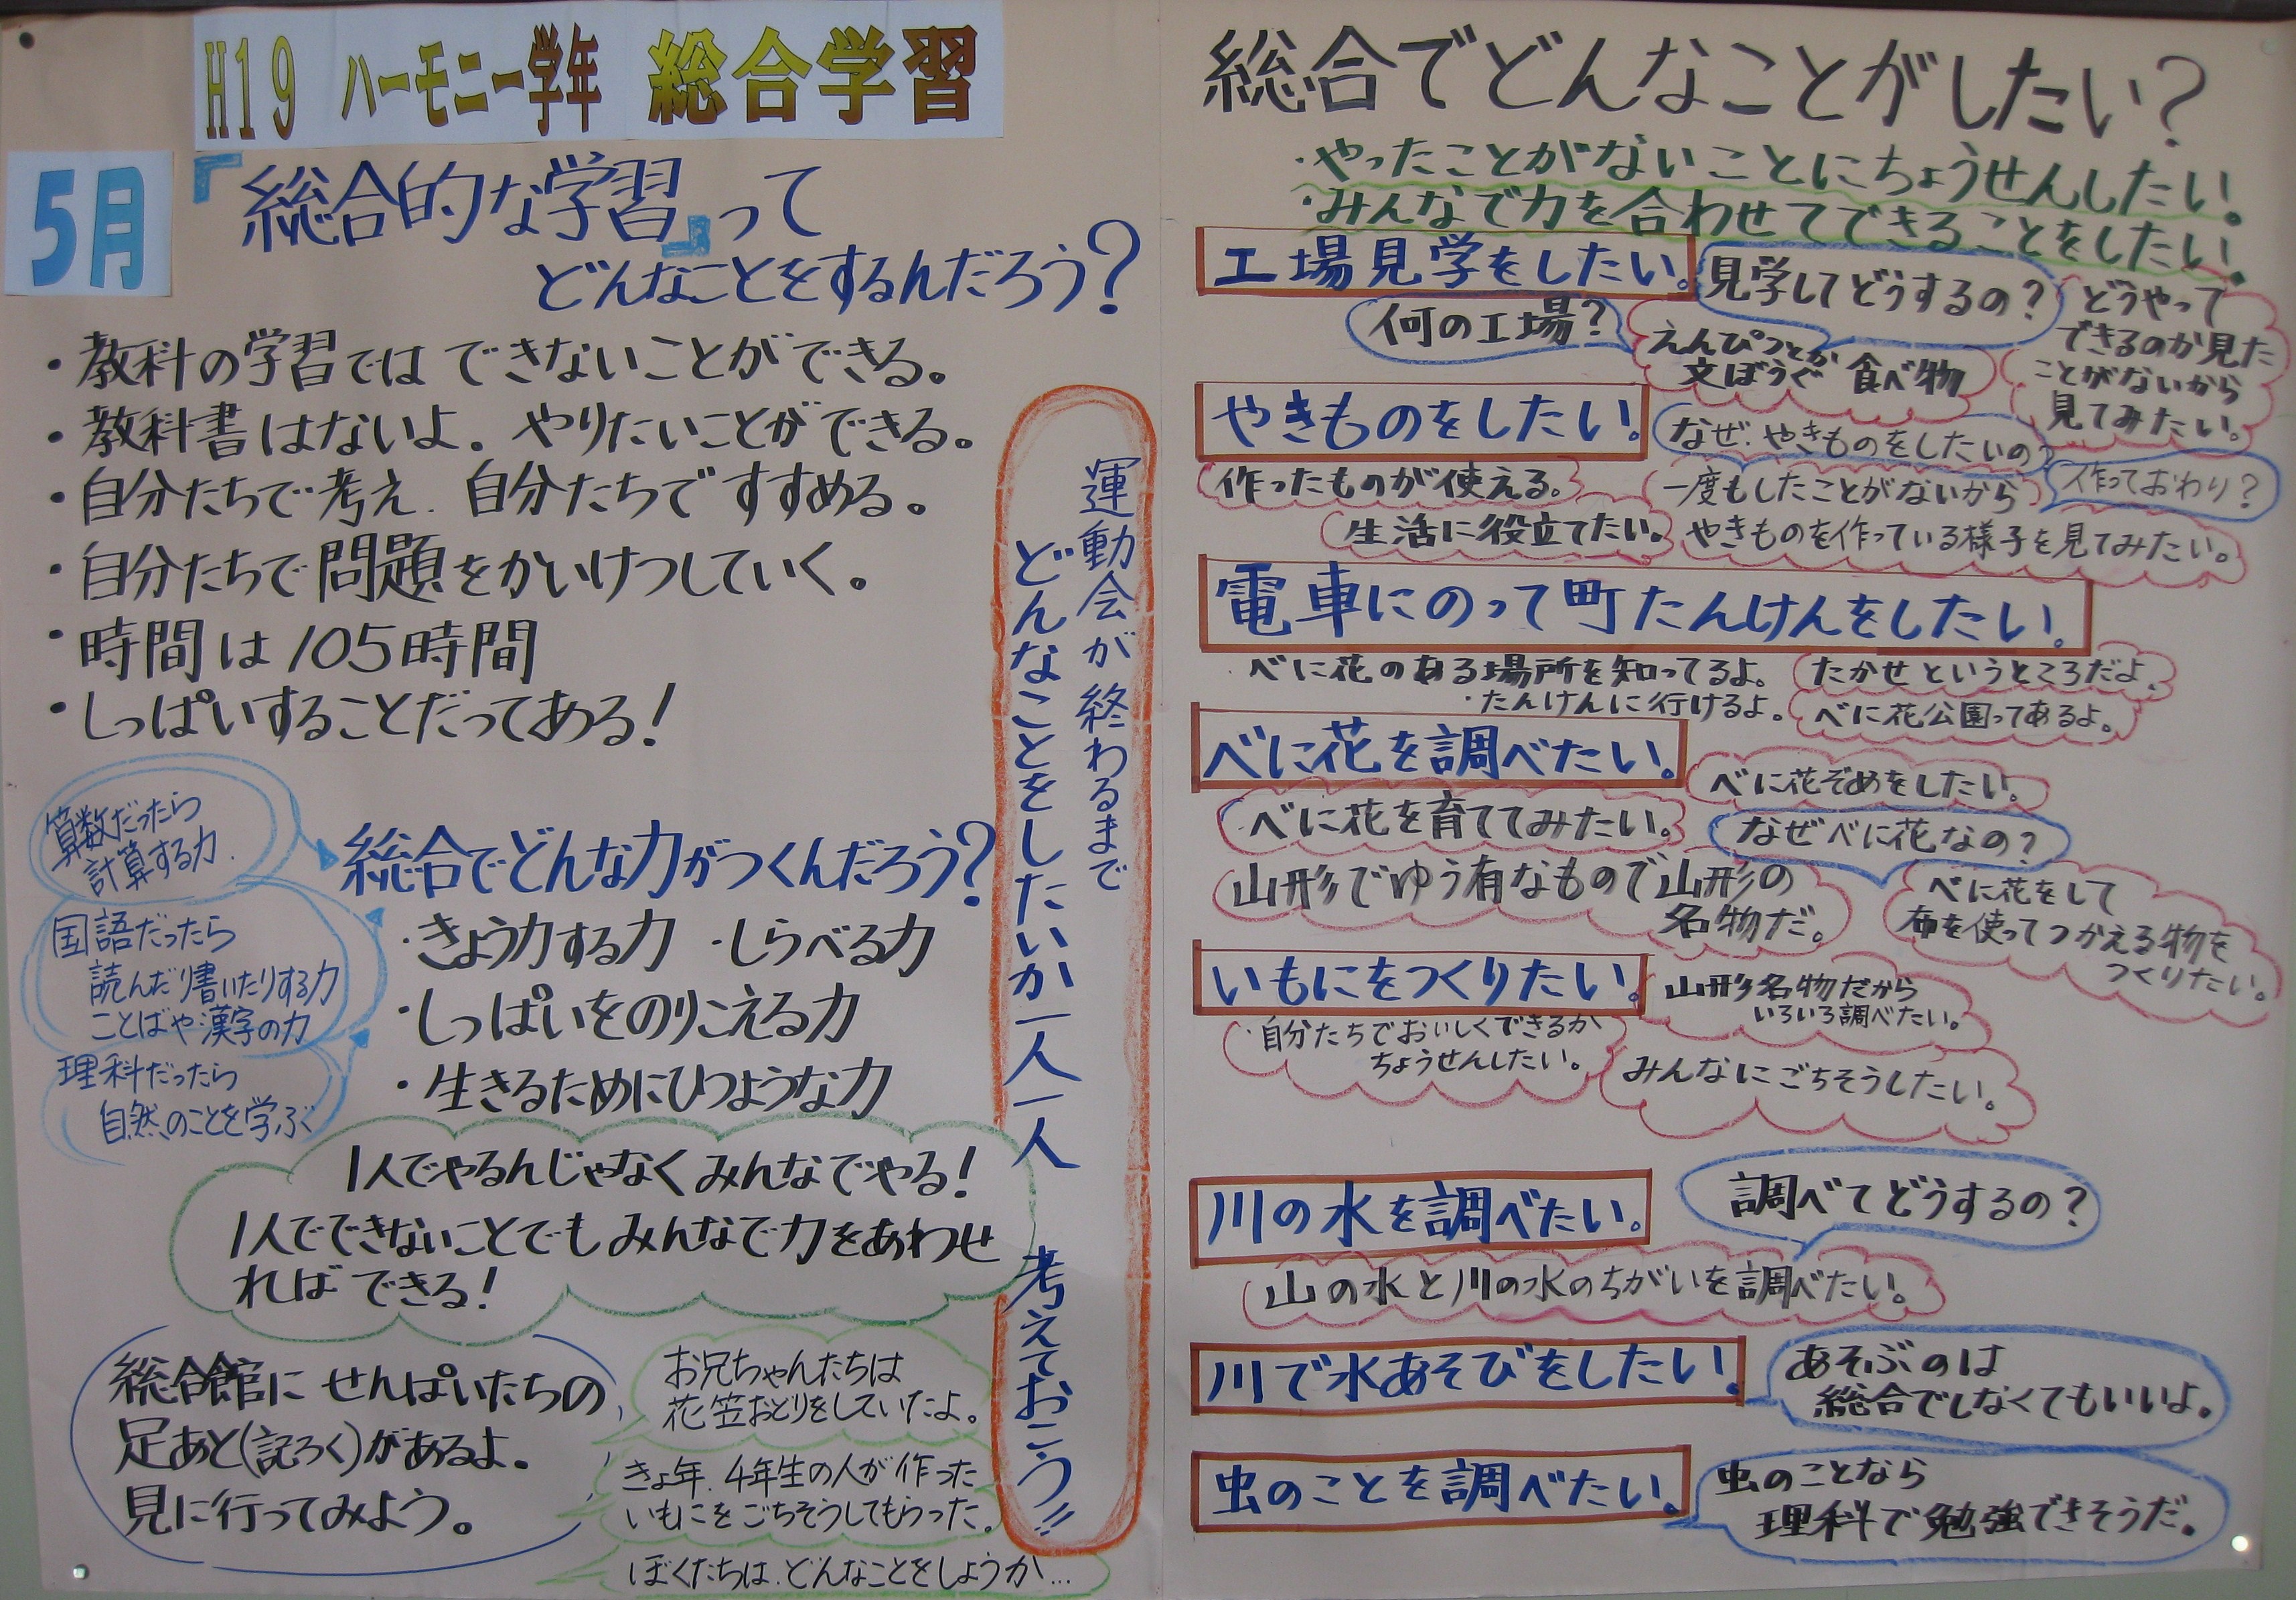 H19 ハーモニー学年 総合学習
5月
『総合的な学習』って
どんなことをするんだろう?
・教科の学習では できないことができる。
・教科書はないよ. やりたいことができる。
・自分たちで考え. 自分たちですすめる。
・自分たちで問題をかいけつしていく。
・時間は105時間
・しっぱいすることだってある!
算数だったら
計算する力.
国語だったら
読んだり書いたりする力
ことばや漢字の力
理科だったら
自然のことを学ぶ
総合でどんな力がつくんだろう?
・きょう力する力 ・しらべる力
・しっぱいをのりこえる力
・生きるためにひつような力
1人でやるんじゃなくみんなでやる!
1人でできないことでもみんなで力をあわせ
ればできる!
総合館に せんぱいたちの
足あと(記ろく)があるよ.
見に行ってみよう。
お兄ちゃんたちは
花笠おどりをしていたよ。
きょ年. 4年生の人が作った
いもにをごちそうしてもらった.
ぼくたちは.どんなことをしようか...
運動会が終わるまで
どんなことをしたいか一人一人 考えておこう!!
総合でどんなことがしたい?
・やったことがないことにちょうせんしたい。
・みんなで力を合わせてできることをしたい。
工場見学をしたい。
見学してどうするの?
どうやって
できるのか見た
ことがないから
見てみたい。
何の工場?
えんぴつとか
文ぼうぐ 食べ物
やきものをしたい.
なぜ.やきものをしたいの?
作ったものが使える。
一度もしたことがないから
作っておわり?
生活に役立てたい。
やきものを作っている様子を見てみたい。
電車にのって町たんけんをしたい.
べに花のある場所を知ってるよ。
たかせというところだよ.
・たんけんに行けるよ。
べに花公園ってあるよ。
べに花を調べたい。
べに花ぞめをしたい。
べに花を育ててみたい。
なぜべに花なの?
山形でゆう有なもので山形の
名物だ。
べに花をして
布を使ってつかえる物を
つくりたい。
いもにをつくりたい.
山形名物だから
いろいろ調べたい。
・自分たちでおいしくできるか
ちょうせんしたい。
みんなにごちそうしたい。
川の水を調べたい。
調べてどうするの?
山の水と川の水のちがいを調べたい。
川で水あそびをしたい.
あそぶのは
総合でしなくてもいいよ.
虫のことを調べたい.
虫のことなら
理科で勉強できそうだ.